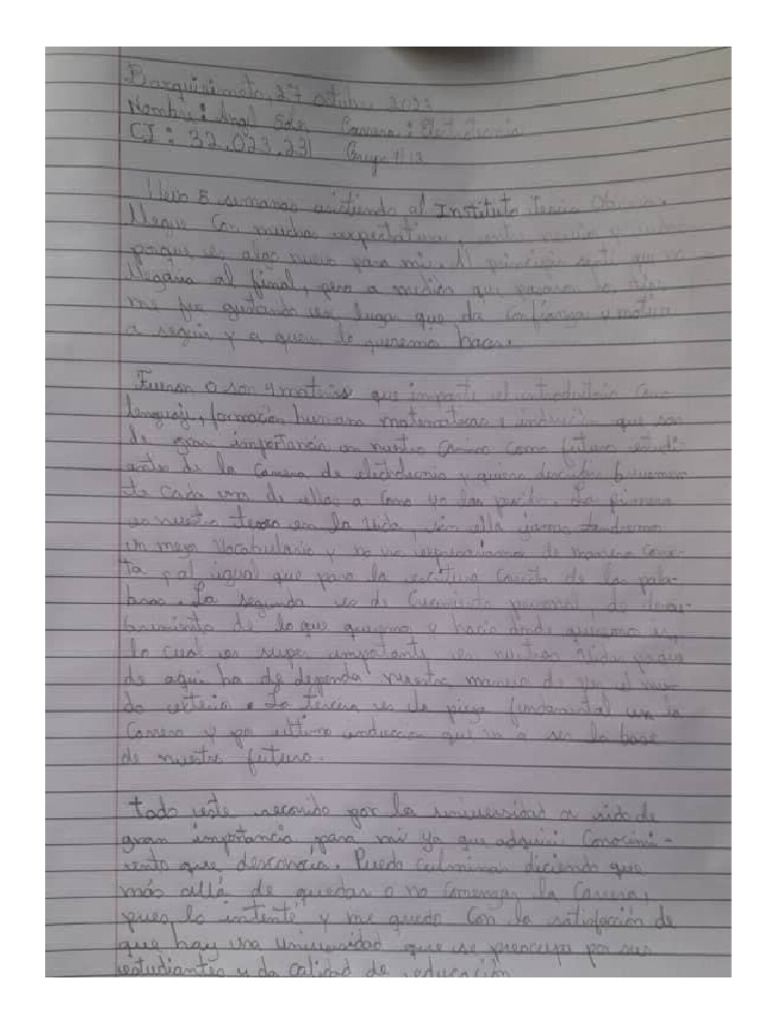 Barquisimeto, 27 octubre 2023
Nombre: Angl Carrera: Electrónica
CI: 32.023.231 Grupo
llevo 5 semanas asistiendo al Instituto
llegue con muchas expectativa, entre
porque es algo nuevo para mi. Al principio senti que no
llegaria al final, pero a medida que pasaron los dias
me fue gustando ese lugar que da confianza y motiva
a seguir y a que lo queremos hacer.
Fueron o son 4 materias que imparte el introductorio como
lenguaje, formación humana matematicas e inducción que son
de gran importancia en nuestro camino como futuro estudi-
antes de la carrera de electrónica y quiero describir brevemen-
te cada una de ellas a como yo las percibo. La primera
es nuestro en la vida, sin ella jamas tendremos
un mejor vocabulario y no nos expresariamos de manera correc-
ta, al igual que para la escritura correcta de las pala-
bras. La segunda es de crecimiento personal, de descu-
brimiento de lo que queremos y hacia donde queremos ir,
lo cual es super importante en nuestras vidas porque
de aqui ha de depender nuestra manera de ver el mun-
do exterior. La tercera es la pieza fundamental en la
carrera y por ultimo induccion que va a ser la base
de nuestro futuro.
todo este recorrido por la universidad a sido de
gran importancia para mi ya que adquiri conocimi-
ento que desconocia. Puedo culminar diciendo que
más allá de quedar o no comenzar la carrera,
pues lo intenté y me quedo con la satisfacción de
que hay una universidad que se preocupa por sus
estudiantes y da calidad de educación